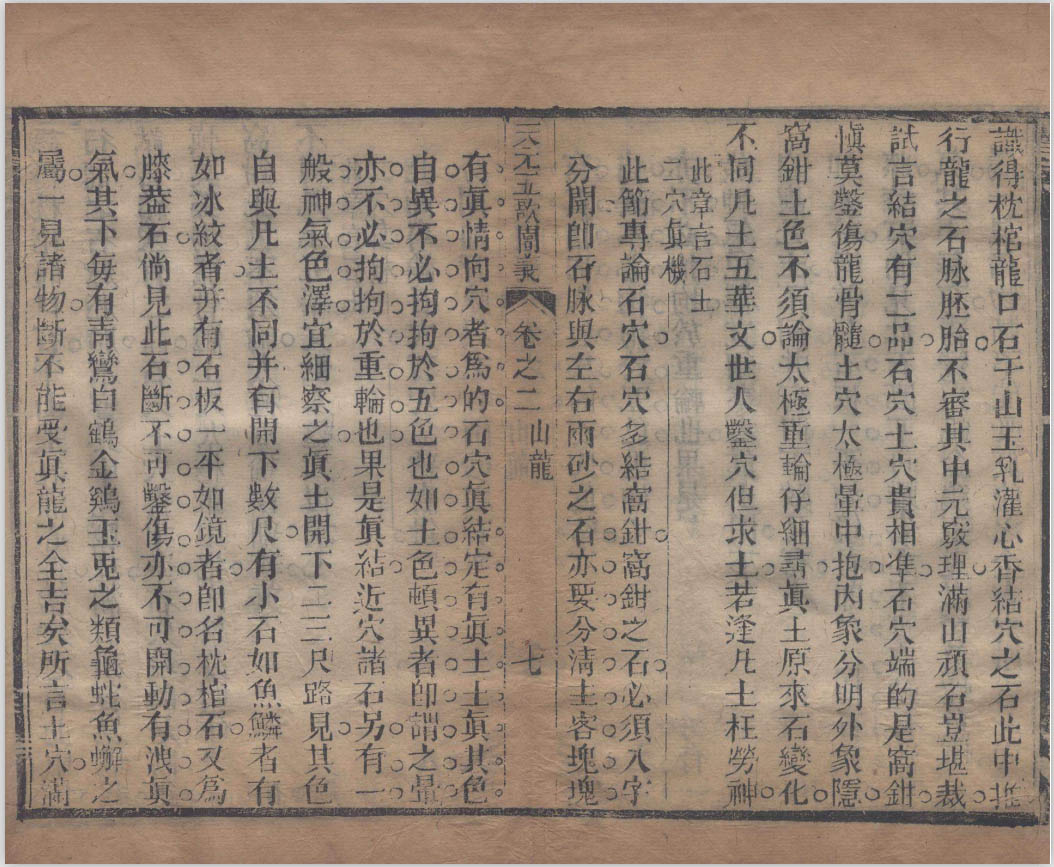 識得枕棺龍口石千山玉乳灌心香結穴之石此中推
行龍之石脉胚胎不審其中元竅理滿山頑石豈堪裁
試言結穴有二品石穴土穴貴相準石穴端的是窩鉗
慎莫鑿傷龍骨髓土穴太極暈中抱內象分明外象隱
窩鉗土色不須論太極重輪仔細尋眞土原來石變化
不同凡土五華文世人鑿穴但求土若逢凡土枉勞神
此章言石土
二穴眞機
此節專論石穴石穴多結窩鉗窩鉗之石必須八字
分開卽石脉與左右兩砂之石亦要分淸土客塊塊
天元五歌闡義 卷之二 山龍 七
有眞情向穴者爲的石穴眞結定有眞土土眞其色
自異不必拘拘於五色也如土色頓異者卽謂之暈
亦不必拘拘於重輪也果是眞結近穴諸石另有一
般神氣色澤宜細察之眞土開下二三尺路見其色
自與凡土不同并有開下數尺有小石如魚鱗者有
如冰紋者并有石板一平如鏡者卽名枕棺石又爲
膝葢石倘見此石斷不可鑿傷亦不可開動有洩眞
氣其下每有靑鸞白鶴金鷄玉兎之類龜蛇魚蠏之
屬一見諸物斷不能受眞龍之全吉矣所言土穴滿